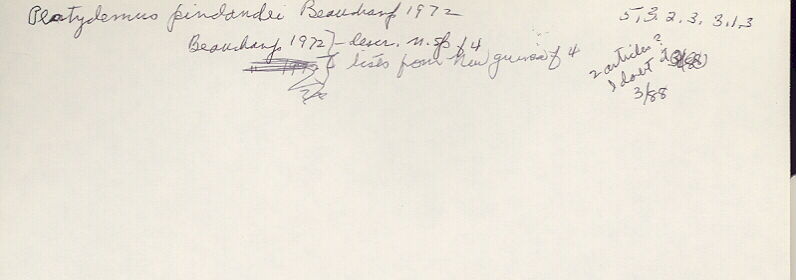 Platydemus pindaudei Beauchamp 1972
5, 3. 2, 3, 3.1.3
Beauchamp 1972 } - descr. n. sp f 4
" 1972 } lists from New guinea f 4
2 articles ?
I doubt it
3/88